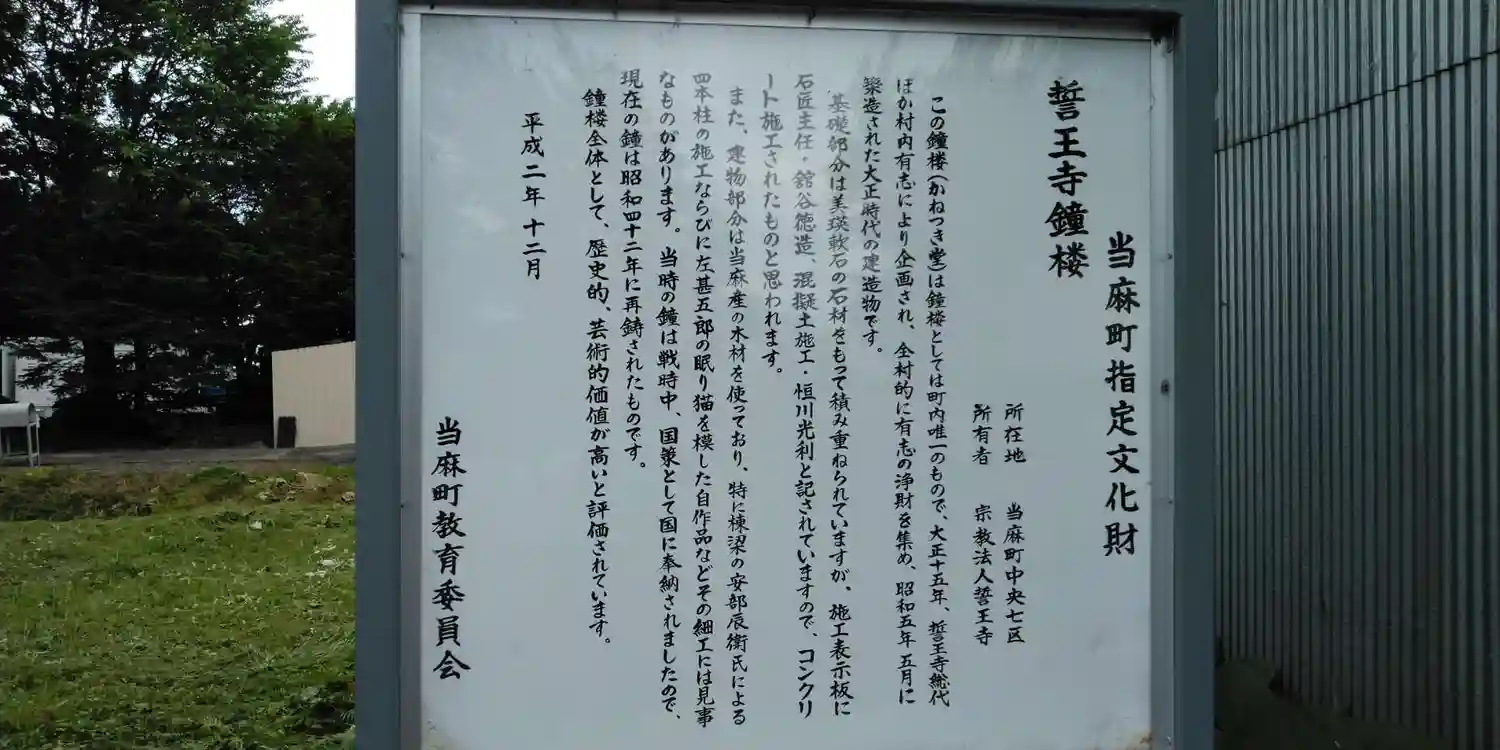 当麻町指定文化財
誓王寺鐘楼
所在地　当麻町中央七区
所有者　宗教法人誓王寺
この鐘楼（かねつき堂）は鐘楼としては町内唯一のもので、大正十五年、誓王寺総代
ほか村内有志により企画され、全村的に有志の浄財を集め、昭和五年五月に
築造された大正時代の建造物です。
基礎部分は美瑛軟石の石材をもって積み重ねられていますが、施工表示板に
石匠主任・舘谷徳造、混擬土施工・恒川光利と記されていますので、コンクリ
ート施工されたものと思われます。
また、建物部分は当麻産の木材を使っており、特に棟梁の安部辰衛氏による
四本柱の施工ならびに左甚五郎の眠り猫を模した自作品などその細工には見事
なものがあります。当時の鐘は戦時中、国策として国に奉納されましたので、
現在の鐘は昭和四十二年に再鋳されたものです。
鐘楼全体として、歴史的、芸術的価値が高いと評価されています。
平成二年十二月
当麻町教育委員会